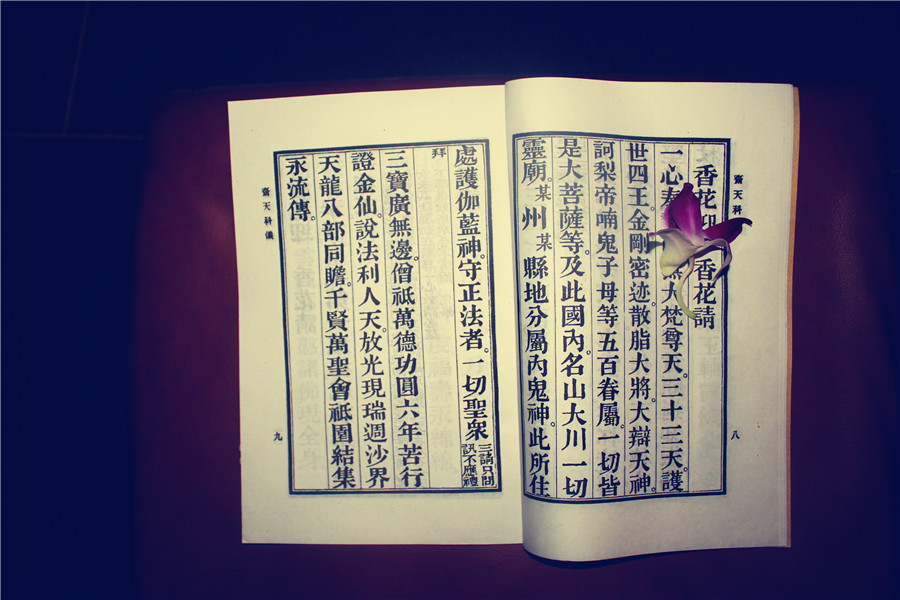 齋天科
八
香花迎香花請
一心奉大梵尊天。三十三天。護
世四王。金剛密迹。散脂大將。大辯天神。
訶梨帝喃鬼子母等五百眷屬。一切皆
是大菩薩等。及此國內。名山大川一切
靈廟。某州某縣地分屬內鬼神。此所住
處護伽藍神。守正法者。一切聖眾三請只問訊不應禮
拜
三寶廣無邊。僧祇萬德功圓六年苦行
證金仙。說法利人天。放光現瑞週沙界
天龍八部同瞻。千賢萬聖會祇園結集
永流傳。
齋天科儀
九